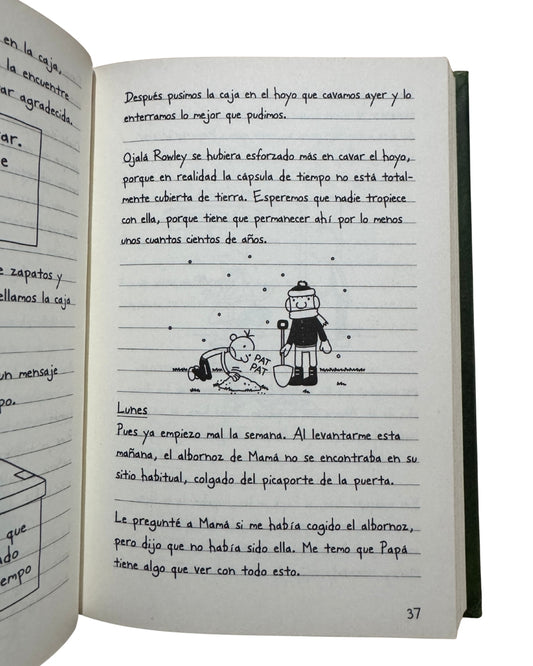 en la caja,
la encuentre
agradecida.
ar.
e
e zapatos y
ellamos la caja
un mensaje
po.
que
ado
empo
Después pusimos la caja en el hoyo que cavamos ayer y lo
enterramos lo mejor que pudimos.
Ojalá Rowley se hubiera esforzado más en cavar el hoyo,
porque en realidad la cápsula de tiempo no está total-
mente cubierta de tierra. Esperemos que nadie tropiece
con ella, porque tiene que permanecer ahí por lo menos
unos cuantos cientos de años.
PAT
PAT
Lunes
Pues ya empiezo mal la semana. Al levantarme esta
mañana, el albornoz de Mamá no se encontraba en su
sitio habitual, colgado del picaporte de la puerta.
Le pregunté a Mamá si me había cogido el albornoz,
pero dijo que no había sido ella. Me temo que Papá
tiene algo que ver con todo esto.
37